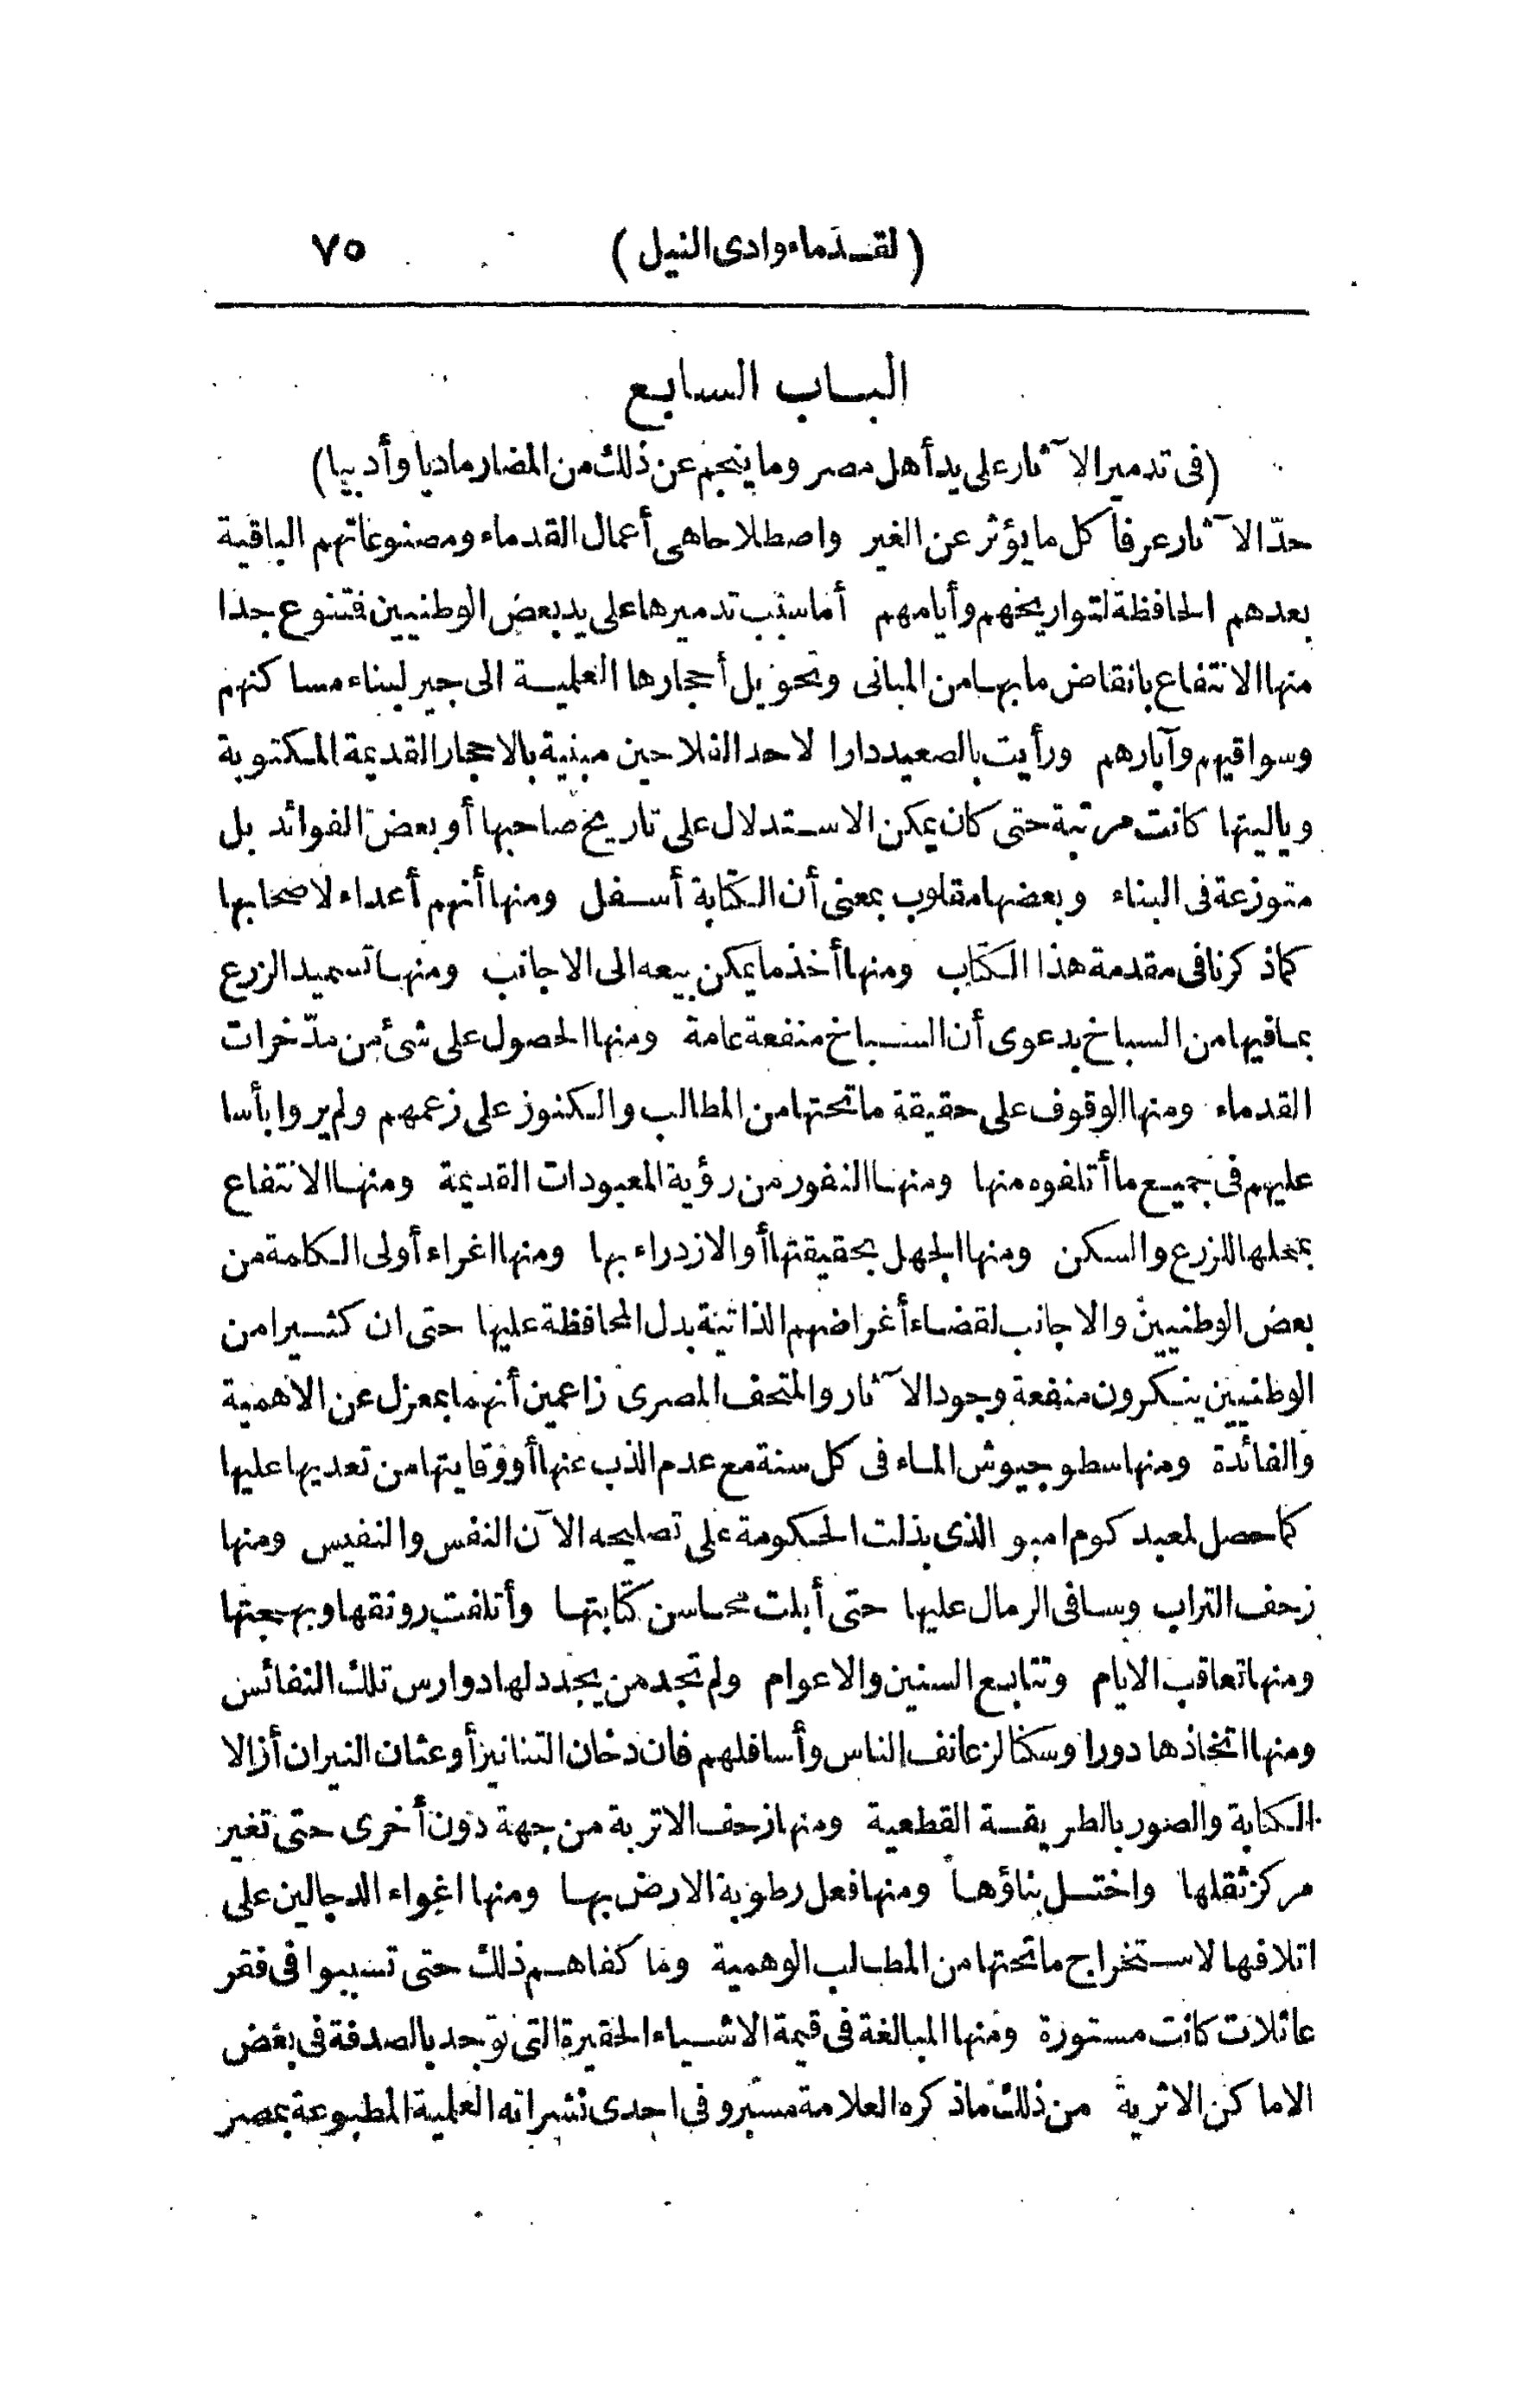 (لقدماء وادى النيل) ٧٥
الباب السابع
(فى تدمير الآثار على يد أهل مصر وما ينجم عن ذلك من المضار ماديا وأدبيا)
حدّ الآثار عرفا كل ما يؤثر عن الغير واصطلاحا هى أعمال القدماء ومصنوعاتهم الباقية
بعدهم الحافظة لتواريخهم وأيامهم أما سبب تدميرها على يد بعض الوطنيين فتنوع جدا
منها الانتفاع بانقاض ما بها من المبانى وتحويل أحجارها العلمية الى جير لبناء مساكنهم
وسواقيهم وآبارهم ورأيت بالصعيد دارا لاحد الفلاحين مبنية بالاحجار القديمة المكتوبة
وياليتها كانت مرتبة حتى كان يمكن الاستدلال على تاريخ صاحبها أو بعض الفوائد بل
متوزعة فى البناء وبعضها مقلوب بمعنى أن الكتابة أسفل ومنها أنهم أعداء لاصحابها
كما ذكرنا فى مقدمة هذا الكتاب ومنها أخذ ما يمكن بيعه الى الاجانب ومنها تسميد الزرع
بما فيها من السباخ بدعوى أن السباخ منفعة عامة ومنها الحصول على شئ من مدّخرات
القدماء ومنها الوقوف على حقيقة ما تحتها من المطالب والكنوز على زعمهم ولم يروا بأسا
عليهم فى جميع ما أتلفوه منها ومنها النفور من رؤية المعبودات القديمة ومنها الانتفاع
بمحلها للزرع والسكن ومنها الجهل بحقيقتها أو الازدراء بها ومنها اغراء أولى الكلمة من
بعض الوطنيين والاجانب لقضاء أغراضهم الذاتية بدل المحافظة عليها حتى ان كثيرا من
الوطنيين ينكرون منفعة وجود الآثار والمتحف المصرى زاعمين أنهما بمعزل عن الاهمية
والفائدة ومنها سطو جيوش الماء فى كل سنة مع عدم الذب عنها أو وقايتها من تعديها عليها
كما حصل لمعبد كوم امبو الذى بذلت الحكومة على تصليحه الآن النفس والنفيس ومنها
زحف التراب وسافى الرمال عليها حتى أبلت محاسن كتابتها وأتلفت رونقها وبهجتها
ومنها تعاقب الايام وتتابع السنين والاعوام ولم تجد من يجدد لها دوارس تلك النفائس
ومنها اتخاذها دورا وسكنا لزعانف الناس وأسافلهم فان دخان التنانير أو عثان النيران أزالا
الكتابة والصور بالطريقة القطعية ومنها زحف الاتربة من جهة دون أخرى حتى تغير
مركز ثقلها واختل بناؤها ومنها فعل رطوبة الارض بها ومنها اغواء الدجالين على
اتلافها لاستخراج ما تحتها من المطالب الوهمية وما كفاهم ذلك حتى تسببوا فى فقر
عائلات كانت مستورة ومنها المبالغة فى قيمة الاشياء الحقيرة التى توجد بالصدفة فى بعض
الاماكن الاثرية من ذلك ما ذكره العلامة مسبرو فى احدى نشراته العلمية المطبوعة بمصر